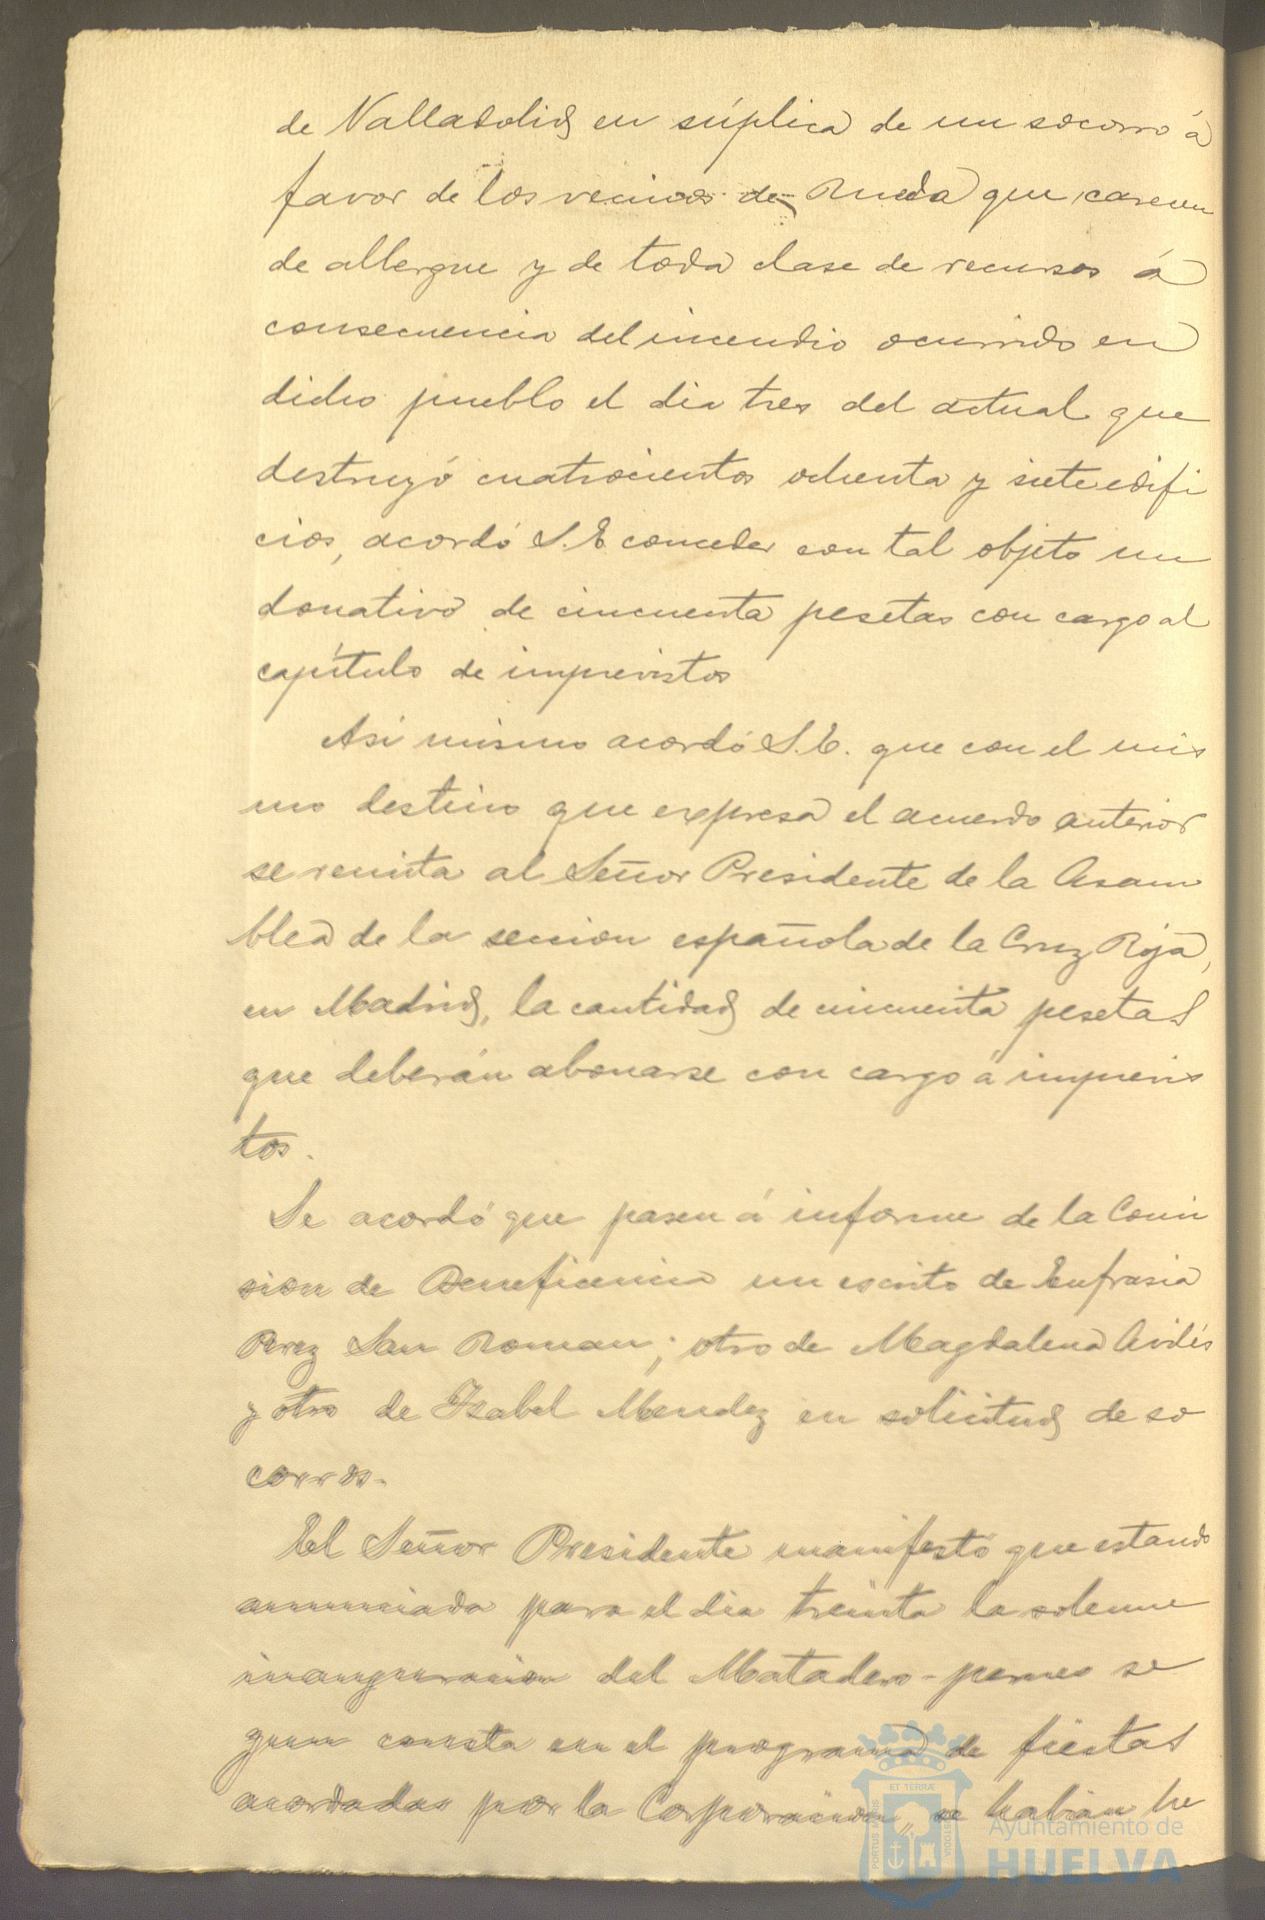 de Valladolid en súplica de un socorro á
favor de los vecinos de Rueda que carecen
de albergue y de toda clase de recursos á
consecuencia del incendio ocurrido en
dicho pueblo el dia tres del actual que
destruyó cuatrocientos ochenta y siete edifi
cios, acordó S.E conceder con tal objeto un
donativo de cincuenta pesetas con cargo al
capítulo de imprevistos
Asi mismo acordó S.E. que con el mis
mo destino que expresa el acuerdo anterior
se remita al Señor Presidente de la Asam
blea de la seccion española de la Cruz Roja,
en Madrid, la cantidad de cincuenta pesetas
que deberán abonarse con cargo á imprevis
tos.
Se acordó que pasen á informe de la Comi
sion de Beneficencia un escrito de Eufrasia
Perez San Roman; otro de Magdalena Avilés
y otro de Isabel Mendez en solicitud de so
corros.
El Señor Presidente manifestó que estando
anunciada para el dia treinta la solemne
inauguracion del Matadero-perneo se
gun consta en el programa de fiestas
acordadas por la Corporacion, se habian he
PORTUS MARIS
ET TERRÆ
CUSTODIA
Ayuntamiento de
HUELVA